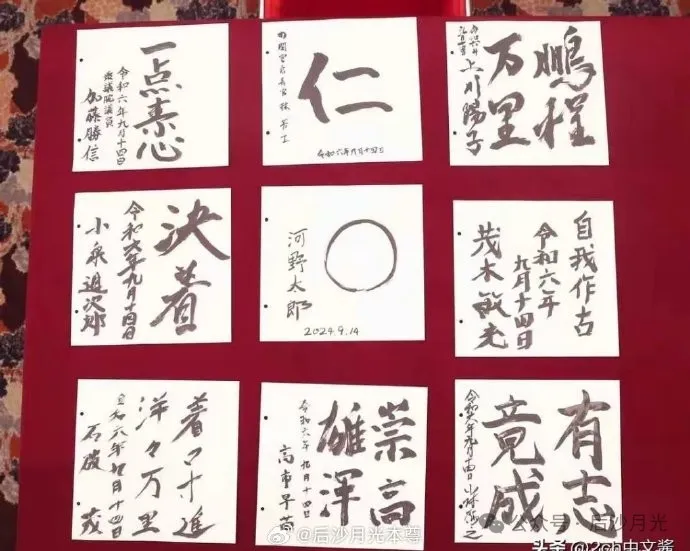 一点素心
令和六年九月十四日
衆議院議員
加藤勝信
仁
内閣官房長官 林芳正
令和六年九月十四日
鵬程
万里
令和六年
九月十四日
上川陽子
決着
令和六年九月十四日
小泉進次郎
河野太郎
2024.9.14
自我作古
令和六年
九月十四日
茂木敏光
着々寸進
洋々万里
令和六年九月十四日
石破茂
崇高
雄渾
令和六年九月十四日
高市早苗
有志
竟成
令和六年九月十四日 小林鷹之
@后沙月光本尊
公众号·后沙月光
头条 @2ch中文酱